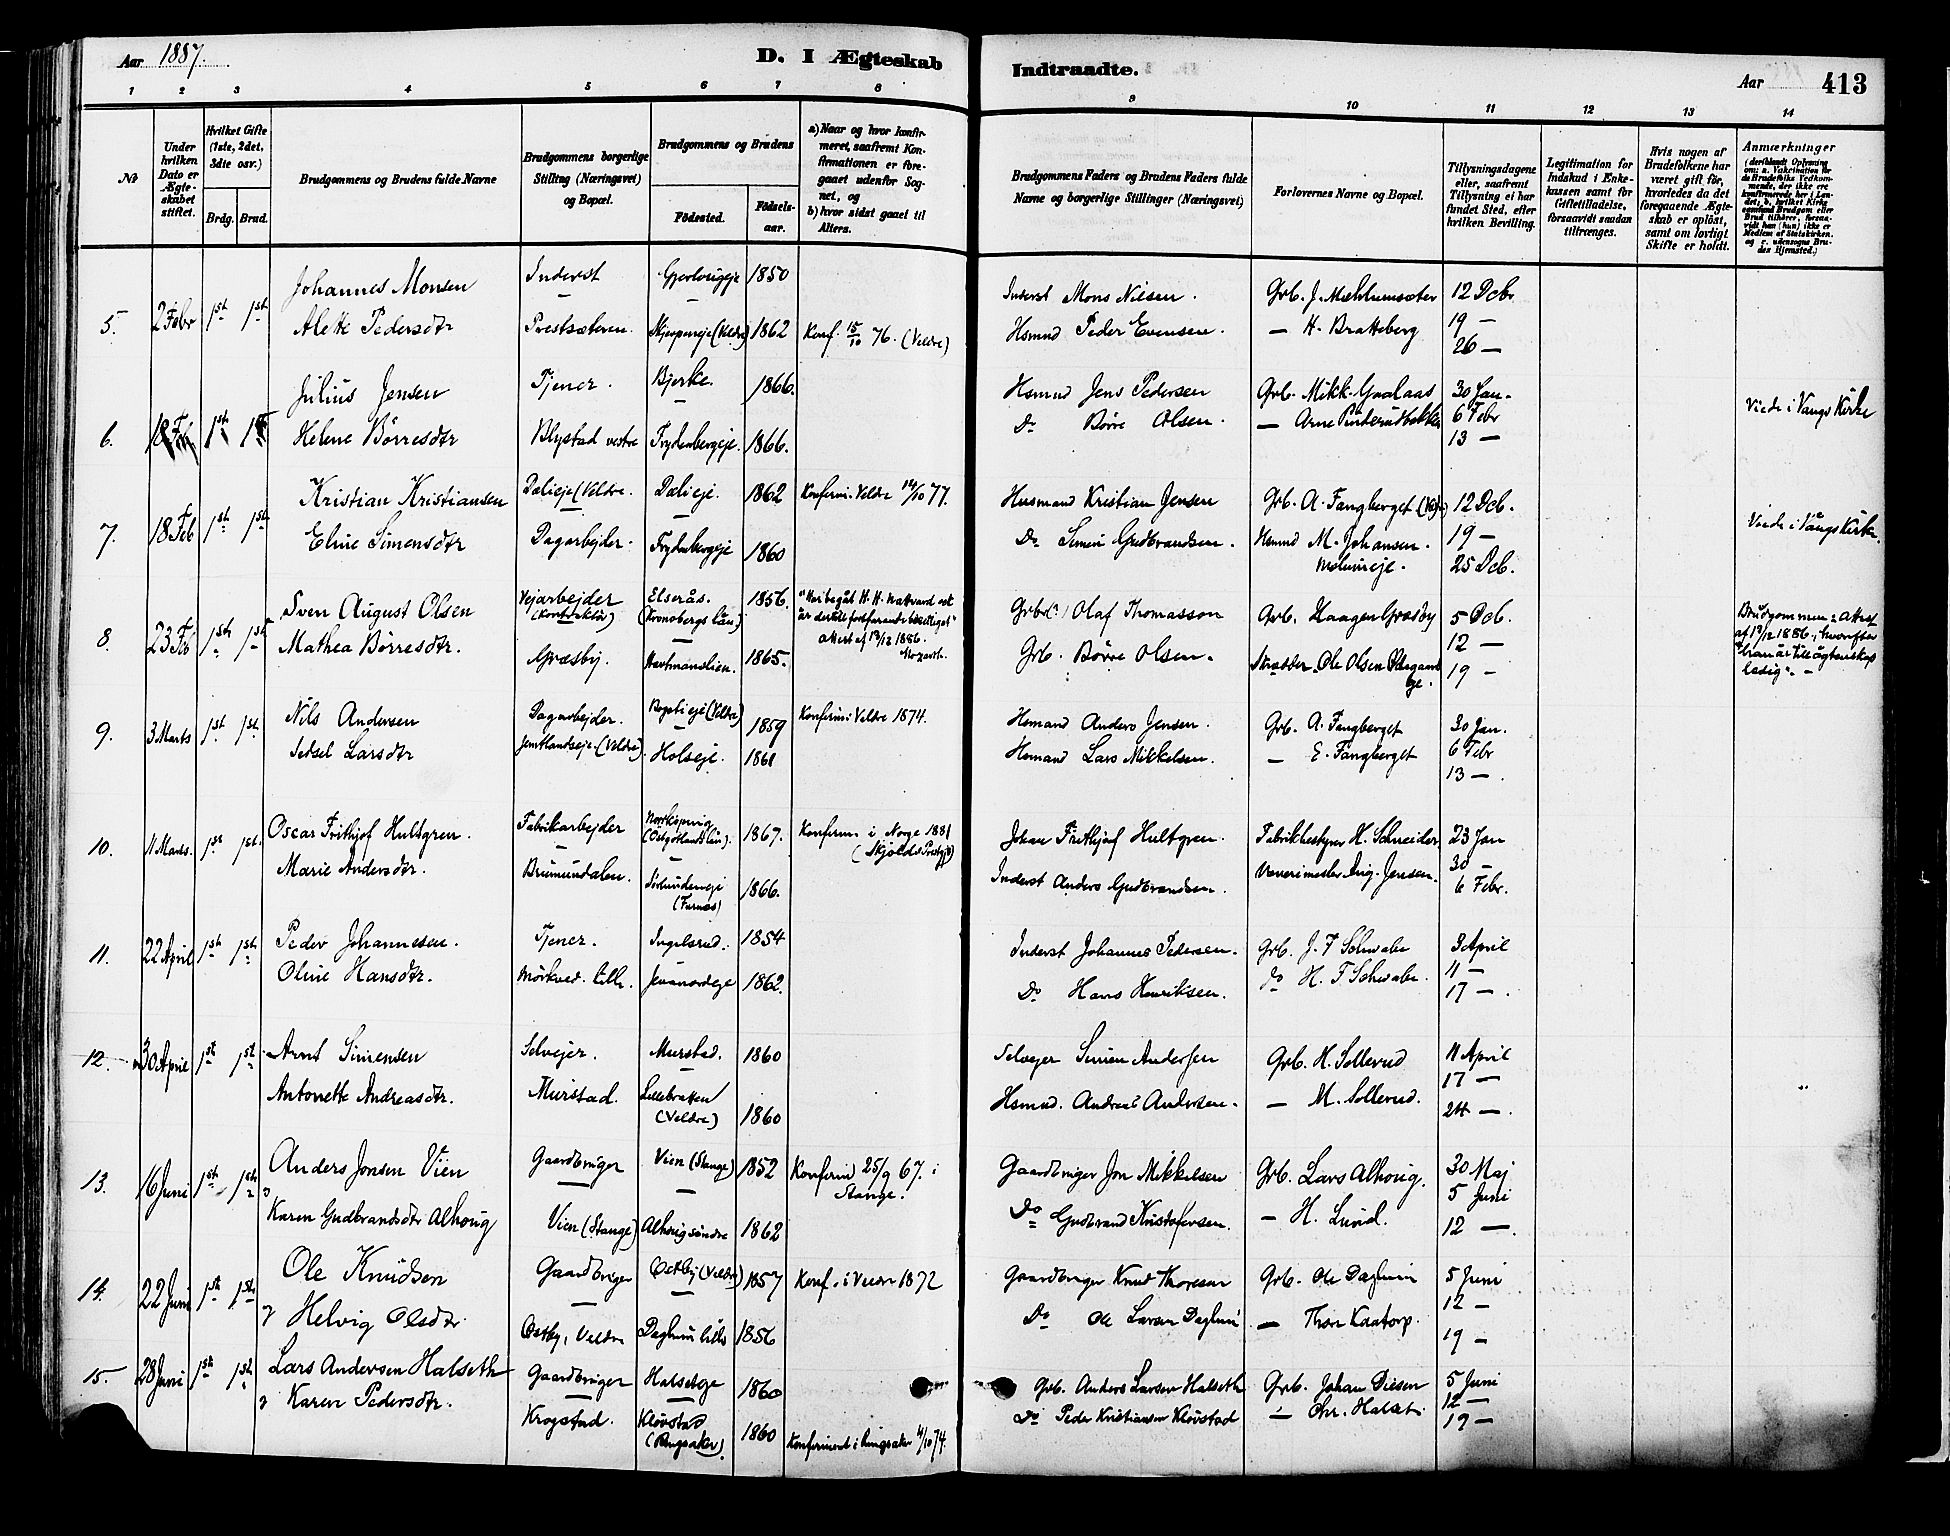 Aar 1887.
D. I Ægteskab
Indtraadte.
Aar
413
1 2 3 4 5 6 7 8 9 10 11 12 13 14
No
Under hvilken Dato er Ægteskabet stiftet.
Hvilket Gifte (1ste, 2det, 3die osv.)
Brdg. Brud.
Brudgommens og Brudens fulde Navne
Brudgommens borgerlige Stilling (Næringsvei) og Bopæl.
Brudgommens og Brudens
Födested.
Födselsaar.
a) Naar og hvor konfirmeret, saafremt Konfirmationen er foregaaet udenfor Sognet, og
b) hvor sidst gaaet til Alters.
Brudgommens Faders og Brudens Faders fulde Navne og borgerlige Stillinger (Næringsvei)
Forlovernes Navne og Bopæl.
Tillysningsdagene eller, saafremt Tillysning ei har fundet Sted, efter hvilken Bevilling.
Legitimation for Indskud i Enkekassen samt for Giftetilladelse, forsaavidt saadan tiltrænges.
Hvis nogen af Brudefolkene har været gift för, hvorledes da det foregaaende Ægteskab er oplöst, samt om lovligt Skifte er holdt.
Anmærkninger
5. 2 Febr 1st 1st Johannes Monsen Inderst 1850 Inderst Mons Nilsen. Grb. J. Mæhlumsæter 12 Dcbr
Alette Pedersdtr Prestsæteren. (Veldre) 1862 Konf. 15/10 76. (Veldre) Hsmnd Peder Evensen. — H. Bratteberg 19 —
26 —
6. 18 Feb 1st 1st Julius Jensen Tjener. Bjerke. 1866. Hsmnd Jens Pedersen Grb. Mikk. Gaalaas 30 Jan. Viede i Vangs Kirke
Helene Börresdtr Blystad vestre Frydenbergeje. 1866. Do Börre Olsen. — Arne 6 Febr
13 —
7. 18 Feb 1st 1st Kristian Kristiansen Dælieje (Veldre. Dælieje. 1862 Konfirm. Veldre 14/10 77. Husmand Kristian Jensen Grb. A. Fangberget 12 Dcb. Viede i Vangs Kirke.
Eline Simensdtr Dagarbejder. Frydenbergeje 1860 Do Simen Gudbrandsen. Hsmnd M. Johansen. 19 —
25 Dcb.
8. 23 Feb 1st 1st Sven August Olsen Vejarbejder Elserås. (Kronobergs län) 1856. Grb. (?) Olaf Thomasson Grb. Haagen Græsby 5 Dcb.
attest af 13/12 1886.
Mathea Börresdtr. Græsby. 1865. Grb. Börre Olsen. Skrædder Ole Olsen 12 —
19 —
9. 3 Marts 1st 1st Nils Andersen Dagarbejder. (Veldre) 1859 Konfirm. i Veldre 1874. Hsmand Anders Jensen. Grb. A. Fangberget 30 Jan.
Sidsel Larsdtr Jemtlandseje (Veldre). Holseje. 1861 Hsmand Lars Mikkelsen. — E. Fangberget 6 Febr
13 —.
10. 11 Marts. 1st 1st. Oscar Frithjof Hultgren. Fabrikarbejder (Ostgotlands län). 1867. Konfirm. i Norge 1881 (Skjolds Prestgj.) Johan Frithjof Hultgren. Fabrikbestyrer H. Schneider 23 Jan
Marie Andersdtr. Brumundalen. (Furnes) 1866. Inderst Anders Gudbrandsen. Vævermester Aug. Jensen. 30 —
6 Febr.
11. 22 April 1st 1st Peder Johannesen. Tjener. Ingelsrud. 1854 Inderst Johannes Pedersen. Grb. J. F Schwabe 3 April
Oline Hansdtr. Mörkved lille. 1862. Do Hans Henriksen. do H. F Schwabe. 11 —
17 —.
12. 30 April 1st 1st Arnt Simensen Selvejer. Murstad. 1860 Selvejer Simen Andersen Grb. H. Sollerud 11 April
Antonette Andreasdtr. Murstad. Lillebratten (Veldre) 1860 Hsmnd. Andreas Andersen. — M. Sollerud. 17 —
24 —.
13. 16 Juni 1st 1st Anders Jonsen Vien Gaardbruger Vien (Stange) 1852 Konfirm 25/9 67. i Stange. Gaardbruger Jon Mikkelsen Grb. Lars Alhoug. 30 Maj
Karen Gudbrandsdtr Alhoug Vien (Stange) Alhoug söndre 1862 Do Gudbrand Kristofersen. — H. Lund. 5 Juni
12 —.
14. 22 Juni 1st 1st Ole Knudsen Gaardbruger Ostby (Veldre) 1857 Konf. i Veldre 1872 Gaardbruger Knud Thoresen Grb. Ole Daglum 5 Juni
Helvig Olsdtr. Ostby, Veldre Daglum lille 1856 Do Ole Larsen Daglum — Thor Kaatorp. 12 —
19 —
15. 28 Juni 1st 1st Lars Andersen Halseth Gaardbruger 1860 Grb. Anders Larsen Halseth Grb. Johan Diesen 5 Juni
Karen Pedersdtr. Krogstad. Klövstad (Ringsaker). 1860 Konfirmeret i Ringsaker 4/10 74. Do Peder Kristiansen Klövstad — Chr. Halset. 12 —
19 —